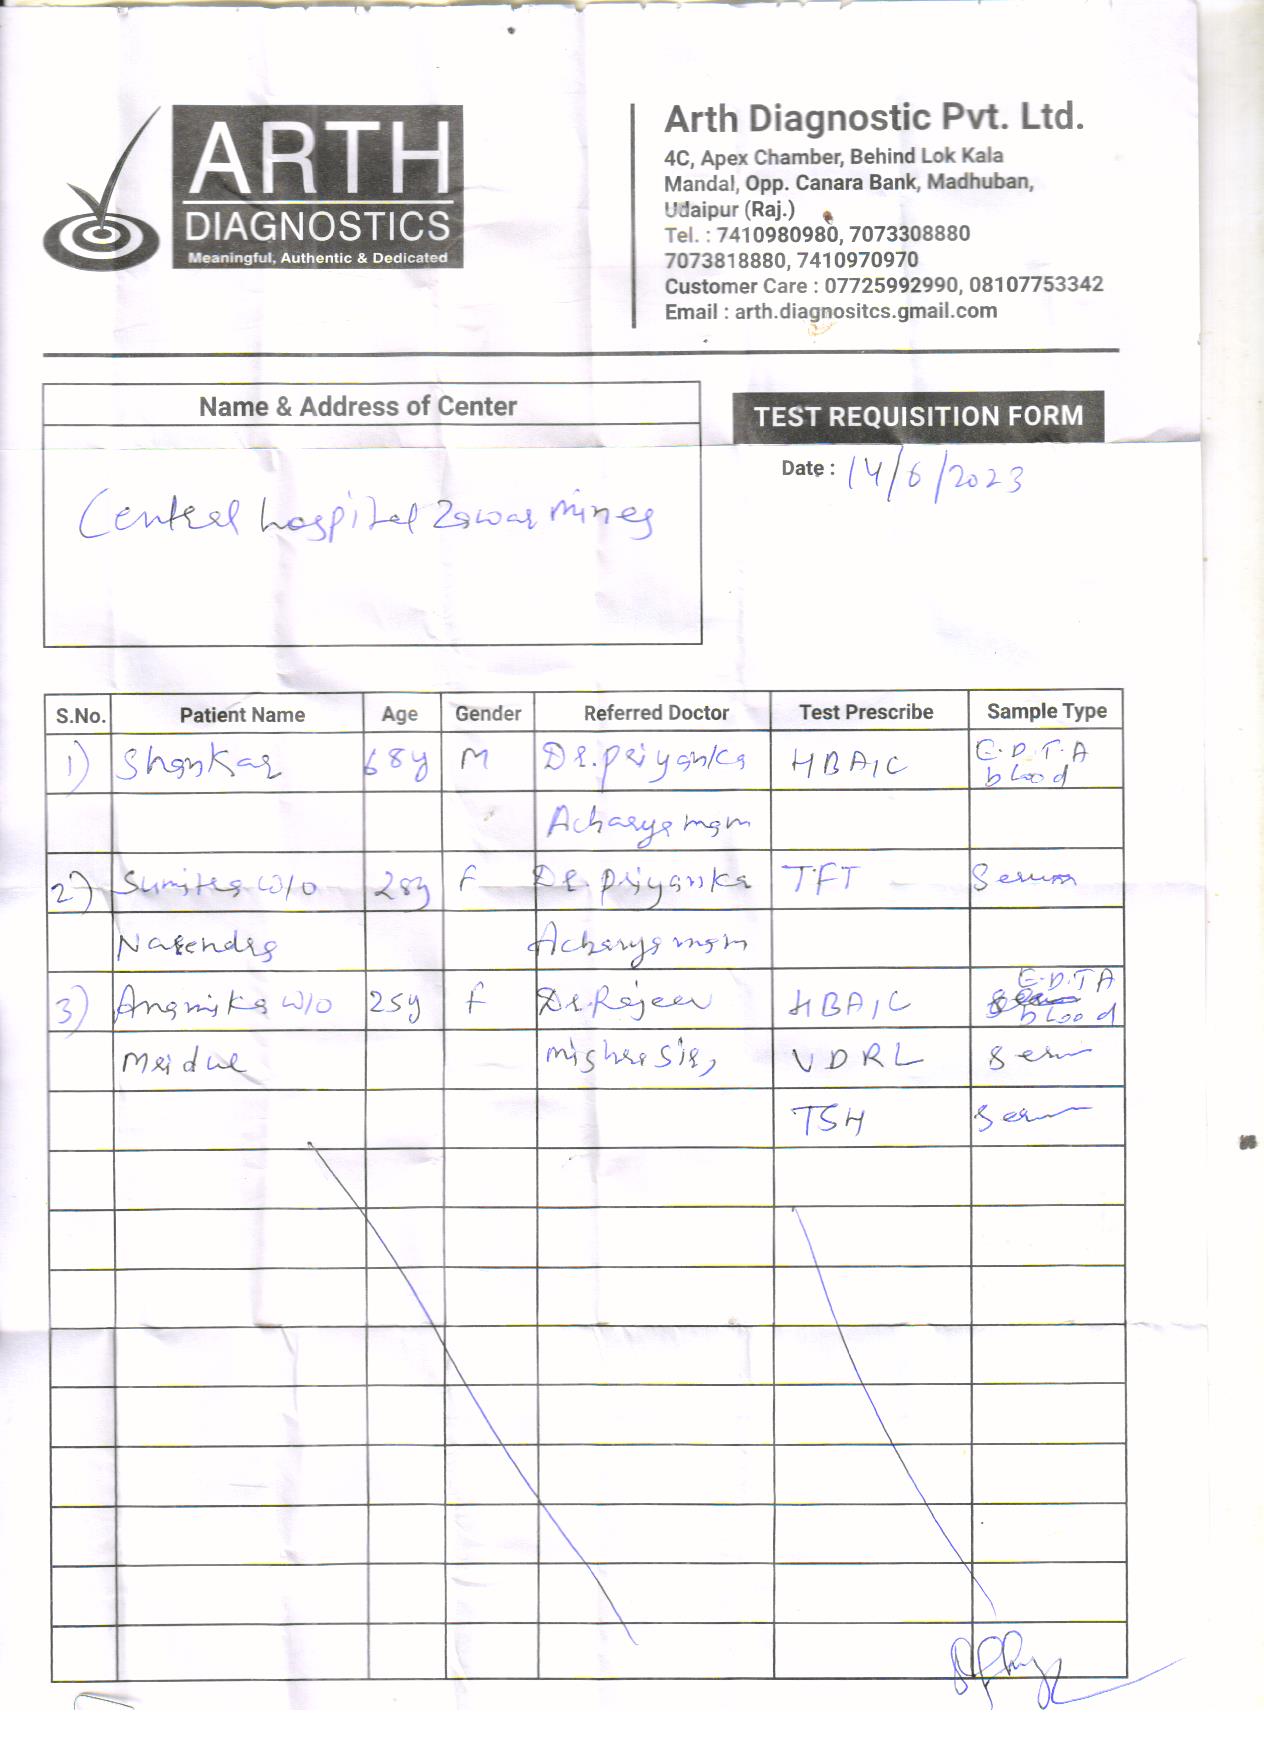 ARTH
DIAGNOSTICS
Meaningful, Authentic & Dedicated
Arth Diagnostic Pvt. Ltd.
4C, Apex Chamber, Behind Lok Kala
Mandal, Opp. Canara Bank, Madhuban,
Udaipur (Raj.)
Tel. : 7410980980, 7073308880
7073818880, 7410970970
Customer Care : 07725992990, 08107753342
Email : arth.diagnositcs.gmail.com
Name & Address of Center
TEST REQUISITION FORM
Date : 14/6/2023
Central hospital Zawar mines
S.No. Patient Name Age Gender Referred Doctor Test Prescribe Sample Type
1) Shankar 68y M Dr. Priyanka HBA1C E.D.T.A
blood
Acharya mam
2) Sumitra W/O 28y F Dr. Priyanka TFT Serum
Narendra Acharya mam
3) Anamika W/O 25y F Dr. Rajeev HBA1C E.D.TA
blood
mishra Sir, VDRL Serum
TSH Serum